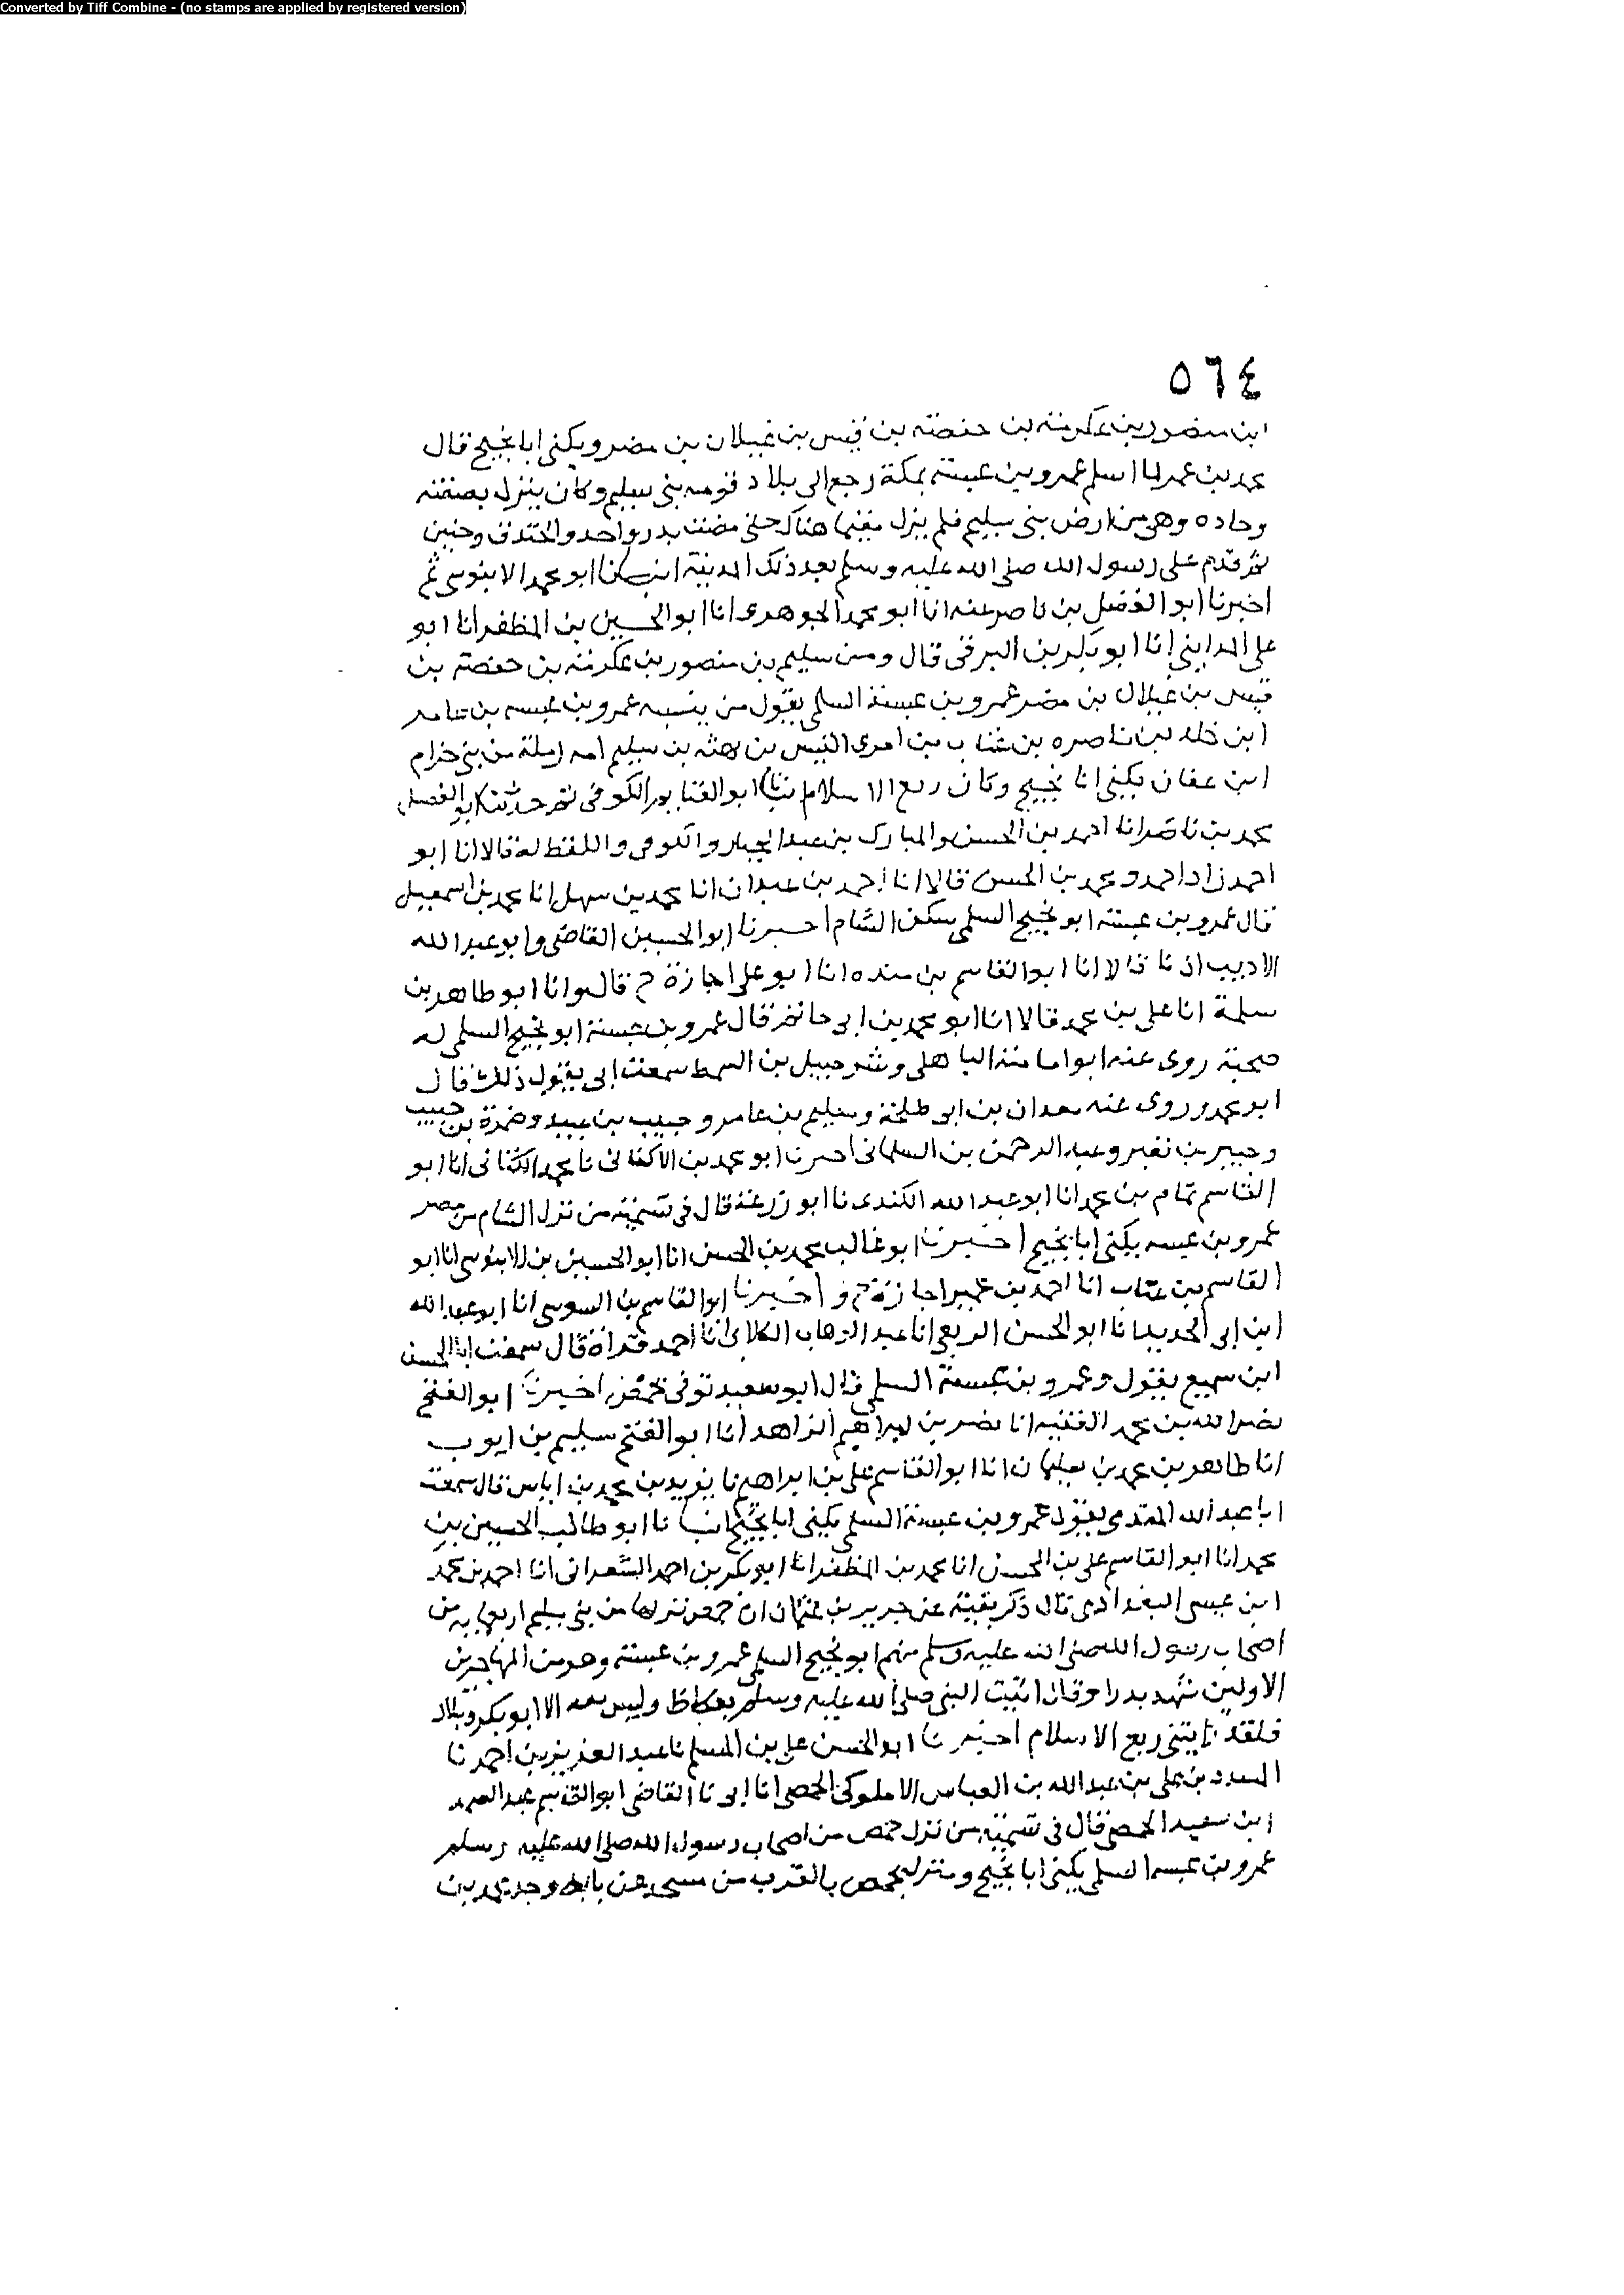 Converted by Tiff Combine - (no stamps are applied by registered version)
٥٦٤
ابن منصور بن عكرمة بن حفصة بن قيس بن غيلان بن مضر ويكنى ابا نجيح قال
محمد بن عمر لما اسلم عمرو بن عبسة بمكة رجع الى بلاد قومه بني سليم وكان ينزل بصفنه
وحاده وهي من ارض بني سليم فلم يزل مقيما هناك حتى مضت بدر واحد والخندق وحنين
ثم قدم على رسول الله صلى الله عليه وسلم بعد ذلك المدينة ابو محمد الابنوسي ثم
اخبرنا ابو الفضل بن ناصر عنه انا ابو محمد الجوهري انا ابو الحسين بن المظفر انا ابو
علي المدايني انا ابو بكر بن البرقي قال ومن سليم بن منصور بن عكرمة بن حفصة بن
قيس بن غيلان بن مضر عمرو بن عبسة السلمي يقول من ينسبه عمرو بن عبسه بن عامر
ابن خلد بن ناصره بن عتاب بن امرى القيس بن بهثه بن سليم امه رملة من بني خرام
ابن عفان يكنى انا نجيح وكان ربع الاسلام ابو الغنايم الكوفي ثم حدثنا ابو الفضل
محمد بن ناصر انا احمد بن الحسن والمبارك بن عبد الجبار والكوفي واللفظ له قالا انا ابو
احمد زاد احمد ومحمد بن الحسن قالا انا احمد بن عبدان انا محمد بن سهل انا محمد بن اسمعيل
قال عمرو بن عبسة ابو نجيح السلمي يسكن الشام اخبرنا ابو الحسين القاضي وابو عبد الله
الاديب اذنا قالا انا ابو القاسم بن منده انا ابو علي اجازة ح قال وانا ابو طاهر بن
سلمة انا علي بن محمد قالا انا ابو محمد بن ابي حاتم قال عمرو بن عبسة ابو نجيح السلمي له
صحبة روى عنه ابو امامة الباهلي وشرحبيل بن السمط سمعت ابي يقول ذلك قال
ابو محمد وروى عنه معدان بن ابي طلحة وسليم بن عامر وحبيب بن عبيد وضمرة بن حبيب
وجبير بن نفير وعبد الرحمن بن السلماني اخبرنا ابو محمد بن الاكفاني نا محمد الكتاني انا ابو
القاسم تمام بن محمد انا ابو عبد الله الكندي نا ابو زرعة قال في تسمية من نزل الشام من مضر
عمرو بن عبسه يكنى ابا نجيح اخبرنا ابو غالب محمد بن الحسن انا ابو الحسين بن الابنوسي انا ابو
القاسم بن عتاب انا احمد بن عمير اجازة ح واخبرنا ابو القاسم بن السوسي انا ابو عبد الله
ابن ابي الحديد انا ابو الحسن الربعي انا عبد الوهاب الكلابي انا احمد قراة قال سمعت ابا الحسن
ابن سميع يقول وعمرو بن عبسة السلمي قال ابو سعيد توفي بحمص اخبرنا ابو الفتح
نصر الله بن محمد الفقيه انا نصر بن ابراهيم الزاهد انا ابو الفتح سليم بن ايوب
انا طاهر بن محمد بن سليمان انا ابو القاسم علي بن ابراهيم نا يزيد بن محمد بن اياس قال سمعت
ابا عبد الله المقدمي يقول عمرو بن عبسة السلمي يكنى ابا نجيح انبا نا ابو طالب الحسين بن
محمد انا ابو القاسم علي بن المحسن انا محمد بن المظفر انا ابو بكر بن احمد الشعراني انا احمد بن محمد
ابن عيسى البغدادي قال ذكر بقية عن جرير بن عثمان ان حمص نزلها من بني سليم اربعمايه من
اصحاب رسول الله صلى الله عليه وسلم منهم ابو نجيح السلمي عمرو بن عبسة وهو من المهاجرين
الاولين شهد بدرا وقال اتيت النبي صلى الله عليه وسلم بعكاظ وليس معه الا ابو بكر وبلال
فلقد رايتني ربع الاسلام اخبرنا ابو الحسن علي بن المسلم نا عبد العزيز بن احمد نا
المسدد بن علي بن عبد الله بن العباس الاملوكي الحمصي انا ابي نا القاضي ابو القاسم عبد الصمد
ابن سعيد الحمصي قال في تسمية من نزل حمص من اصحاب رسول الله صلى الله عليه وسلم
عمرو بن عبسه السلمي يكنى ابا نجيح ومنزله بحمص بالقرب من مسجد وجد محمد بن